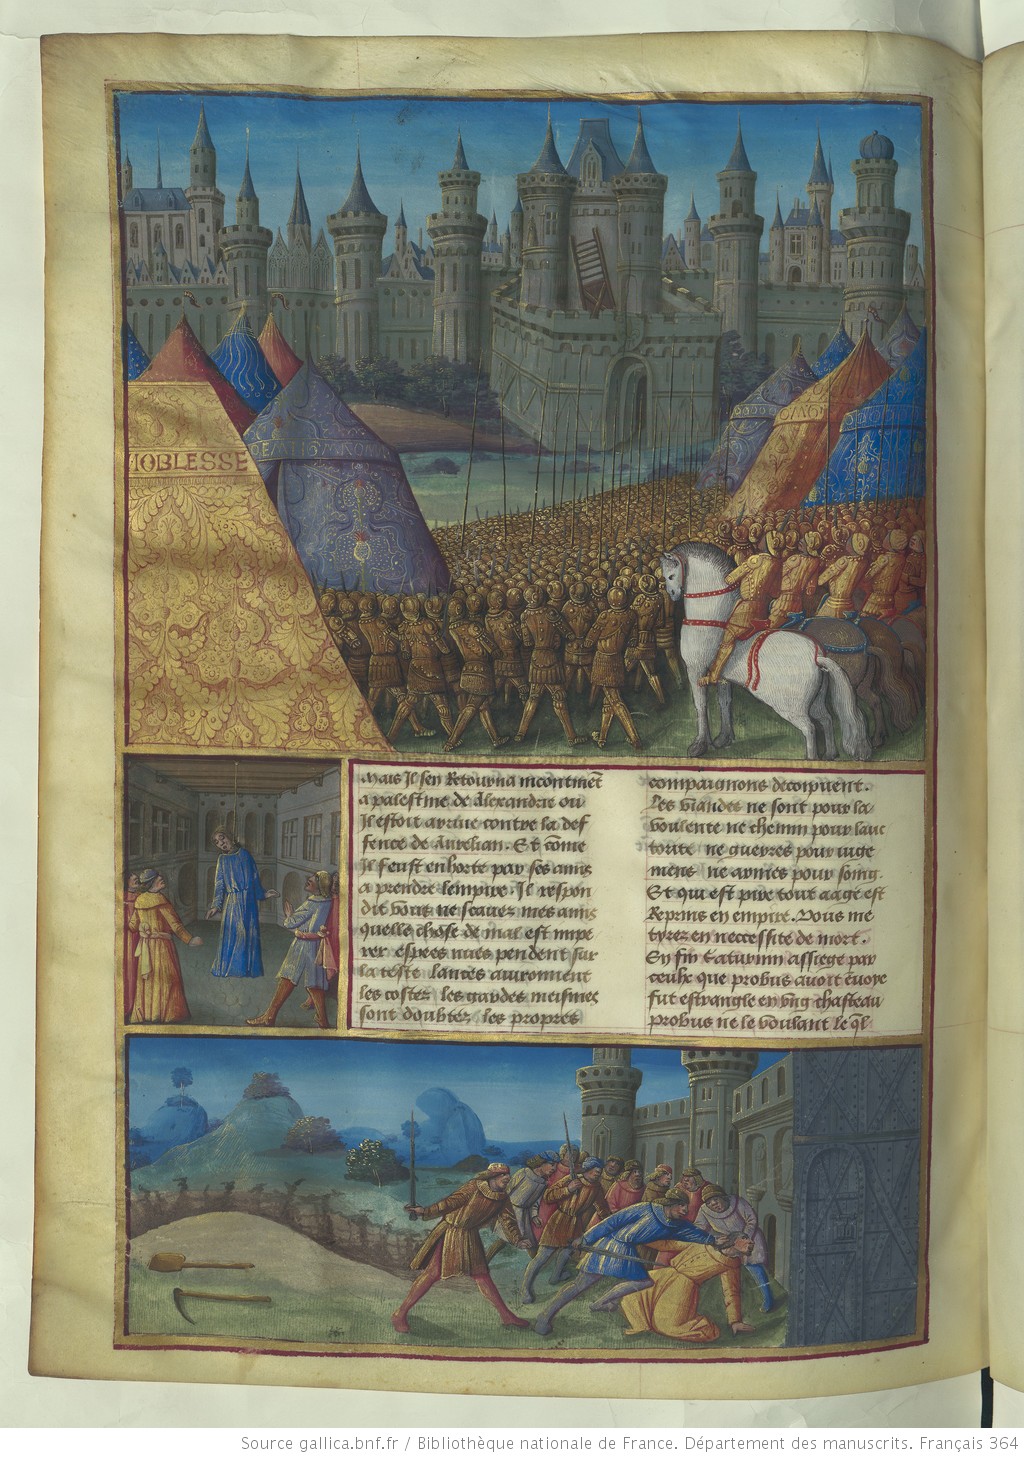 NOBLESSE
Mais Il sen Retourna incontinẽt
a palestine de Alexandrie ou
Il estoit arriue contre la def
fence de Aurelian. Et cõme
Il feust enhorte par ses amis
a prendre lempire. Il respon
dit vous ne scauez mes amis
quelle chose de mal est impe
rer espees nues pendent sur
la teste lances auironnent
les costez les gardes meismes
sont doubtez les propres
compaignons decoipuent.
Les viandes ne sont pour la
voulente ne chemin pour lauc
torite ne guerres pour iuge
ment ne armes pour soing.
Et qui est pire tout aage est
Reprins en empire. Vous me
tyrez en neccessite de mort.
En fin Saturnin assiege par
ceulx que probus auoit ẽuoye
fut estrangle en vng chasteau
Probus ne le voulant le q̃l
Source gallica.bnf.fr / Bibliothèque nationale de France. Département des manuscrits. Français 364